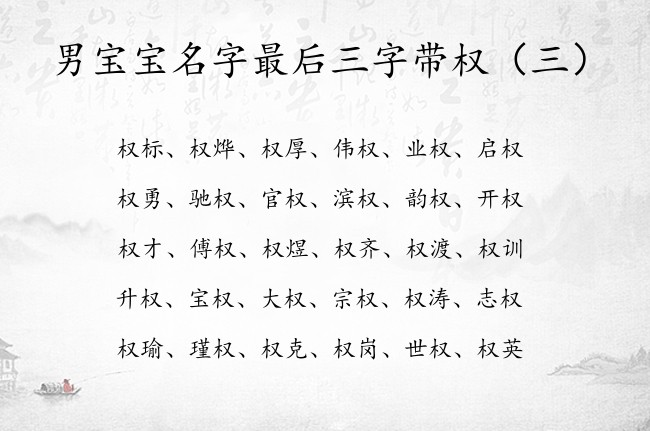 男宝宝名字最后三字带权（三）
权标、权烨、权厚、伟权、业权、启权
权勇、驰权、官权、滨权、韵权、开权
权才、傅权、权煜、权齐、权渡、权训
升权、宝权、大权、宗权、权涛、志权
权瑜、瑾权、权克、权岗、世权、权英